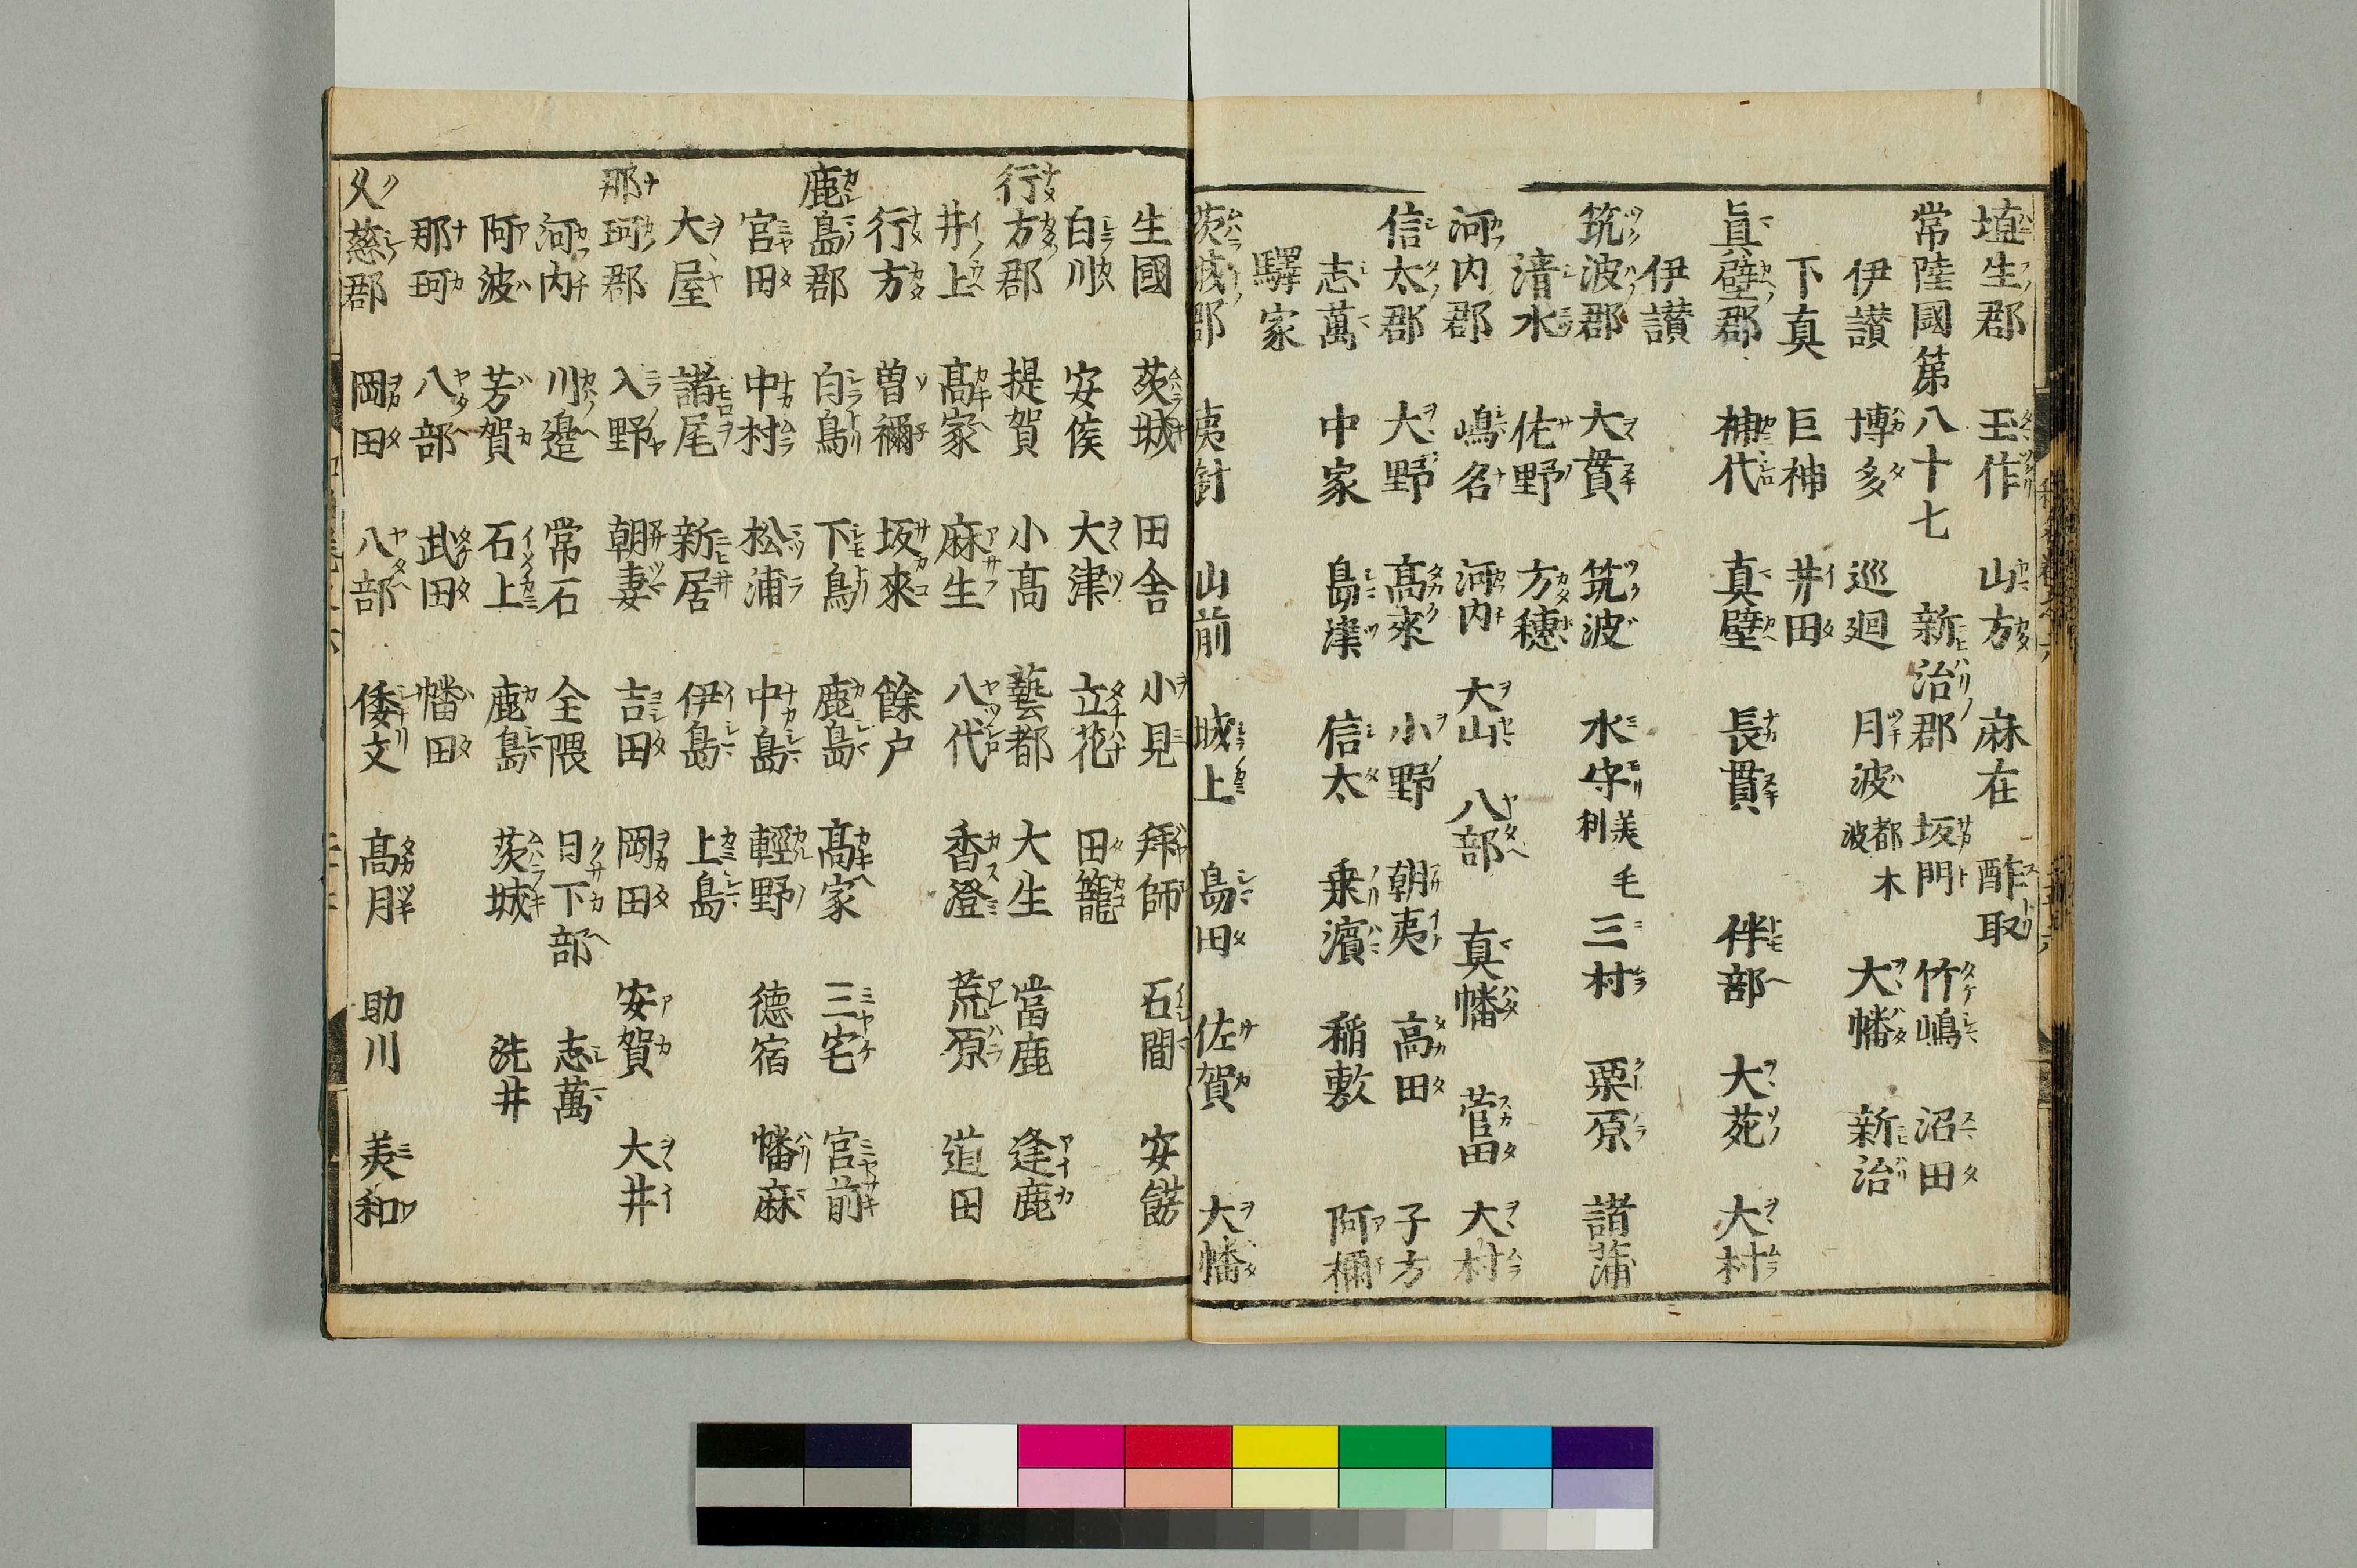 埴生郡 玉作 山方 麻在 酢取
常陸國第八十七 新治郡 坂門 竹嶋 沼田
伊讃 博多 巡廻 月波 都木波 大幡 新治
下真 巨神 井田
真壁郡 神代 真壁 長貫 伴部 大苑 大村
伊讃
筑波郡 大貫 筑波 水守 美毛利 三村 栗原 諸蒲
清水 佐野 方穂
河内郡 嶋名 河内 大山 八部 真幡 菅田 大村
信太郡 大野 髙來 小野 朝夷 高田 子方
志萬 中家 島津 信太 乗濱 稲敷 阿禰
驛家
茨城郡 夷針 山前 城上 島田 佐賀 大幡
生國 茨城 田舎 小見 拜師 石間 安餝
白川 安侯 大津 立花 田籠
行方郡 提賀 小髙 藝都 大生 當鹿 逢鹿
井上 髙家 麻生 八代 香澄 荒原 道田
行方 曽禰 坂來 餘户
鹿島郡 白鳥 下鳥 鹿島 髙家 三宅 宮前
宮田 中村 松浦 中島 輕野 徳宿 幡麻
大屋 諸尾 新居 伊島 上島
那珂郡 入野 朝妻 吉田 岡田 安賀 大井
河内 川邊 常石 全隈 日下部 志萬
阿波 芳賀 石上 鹿島 茨城 洗井
那珂 八部 武田 幡田
久慈郡 岡田 八部 倭文 髙月 助川 美和